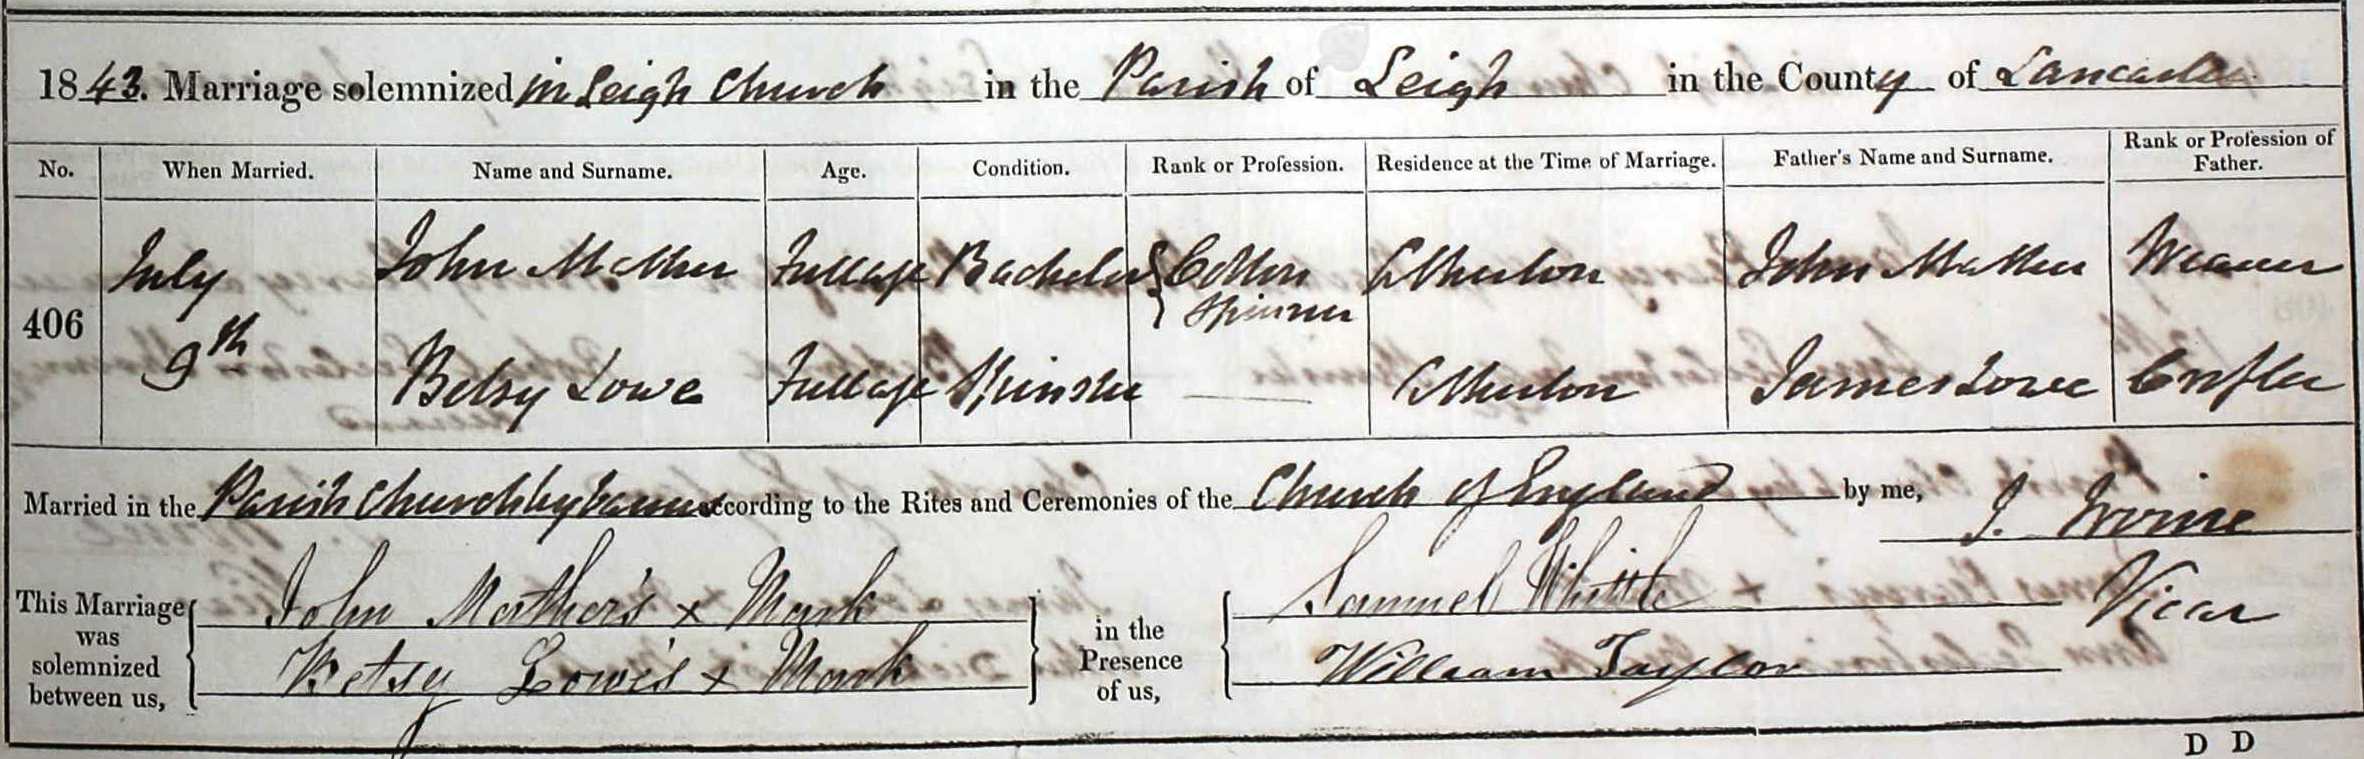 1843. Marriage solemnized in Leigh Church in the Parish of Leigh in the County of Lancaster
No. When Married. Name and Surname. Age. Condition. Rank or Profession. Residence at the Time of Marriage. Father's Name and Surname. Rank or Profession of Father.
406 July 9th
John Mather Full age Bachelor Cotton Spinner Atherton John Mather Weaver
Betsy Lowe Full age Spinster — Atherton James Lowe
Married in the Parish Church by banns according to the Rites and Ceremonies of the Church of England by me, J. Irvine
Vicar
This Marriage was solemnized between us, John Mather's x Mark in the Presence of us, Samuel Whittle
Betsy Lowe's x Mark William Taylor
D D